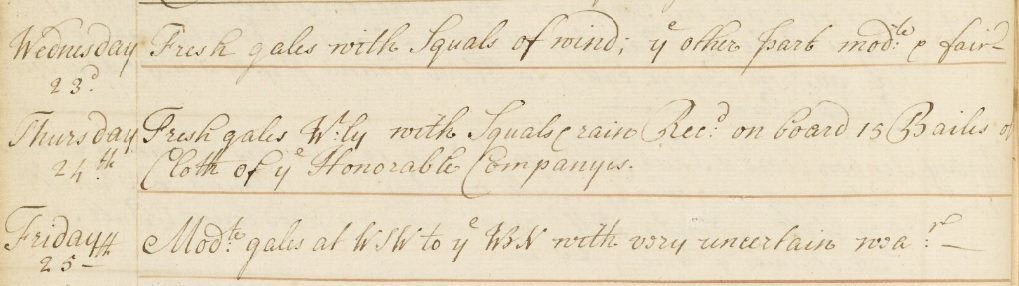 Wednesday Fresh gales with Squals of wind; yᵉ other part modᵗᵉ & fair
23ᵈ
Thursday Fresh gales W:ly with Squals & rain Recᵈ on board 15 Bailes of
24ᵗʰ Cloth of yᵉ Honorable Companyes.
Friday Modᵗᵉ gales at WSW to yᵉ WBN with very uncertain wea:ʳ
25ᵗʰ